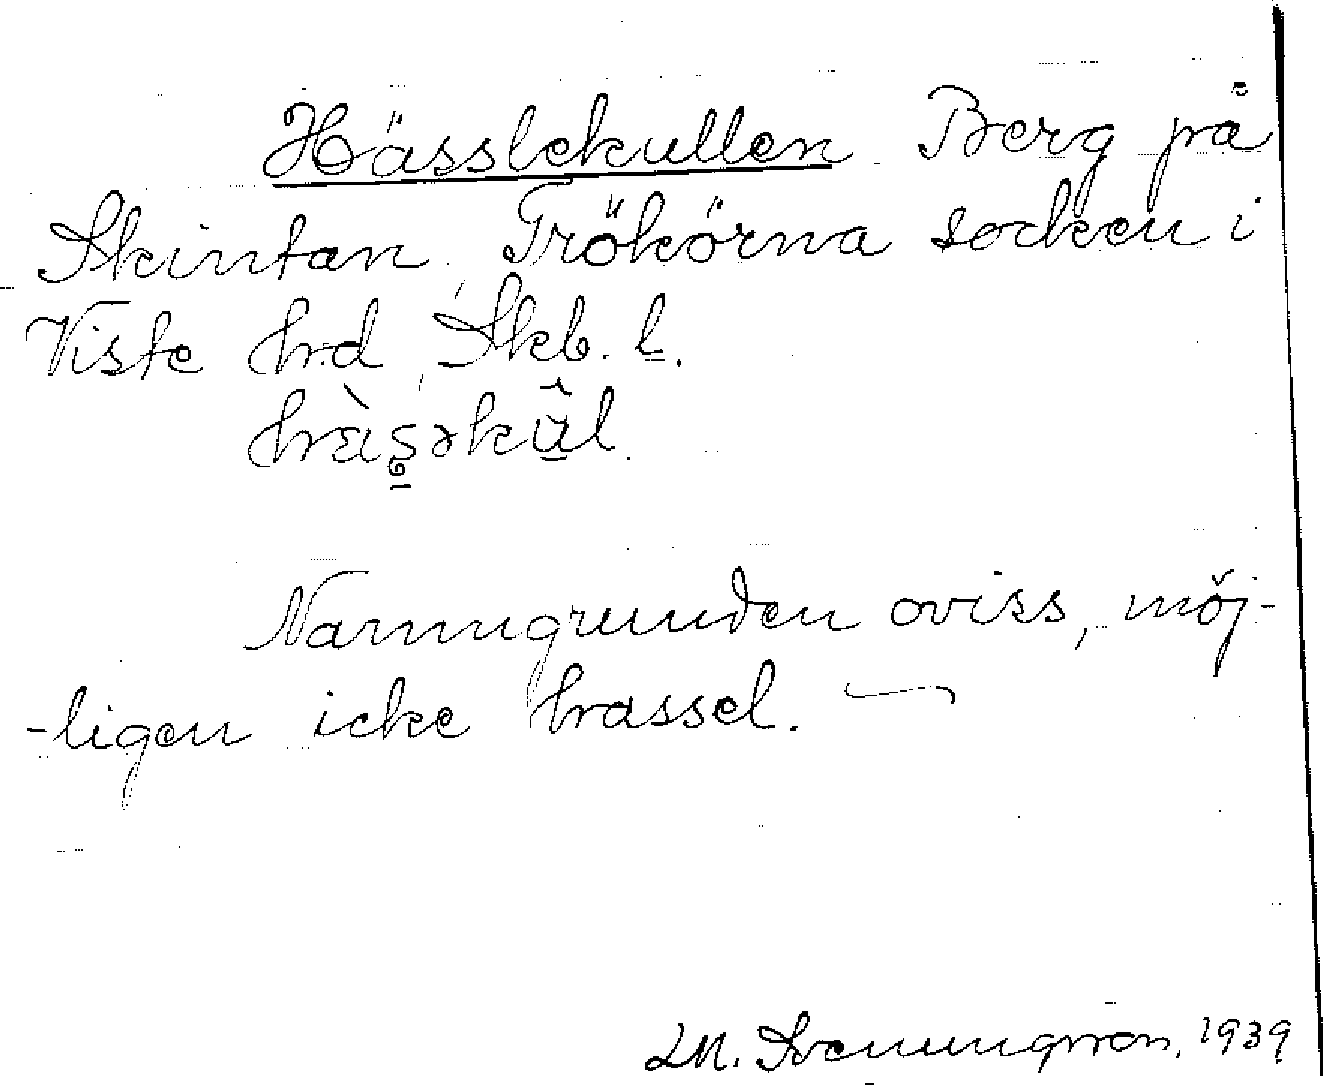 Hässlekullen Berg på
Skintan, Trökörna socken i
Viste hd, Skb. l.
Namngrunden oviss, möj-
-ligen icke hassel. —
Svenungsson, 1939